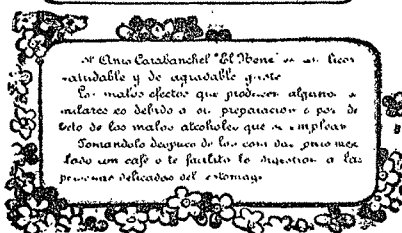 El Anis Carabanchel "El Nene" es un licor
saludable y de agradable gusto
Los malos efectos que producen algunos si
milares es debido a su preparacion o por de
fecto de los malos alcoholes que se emplean
Tomandolo despues de las comidas puro mez
clado con café o te facilita la digestion a las
personas delicadas del estomago